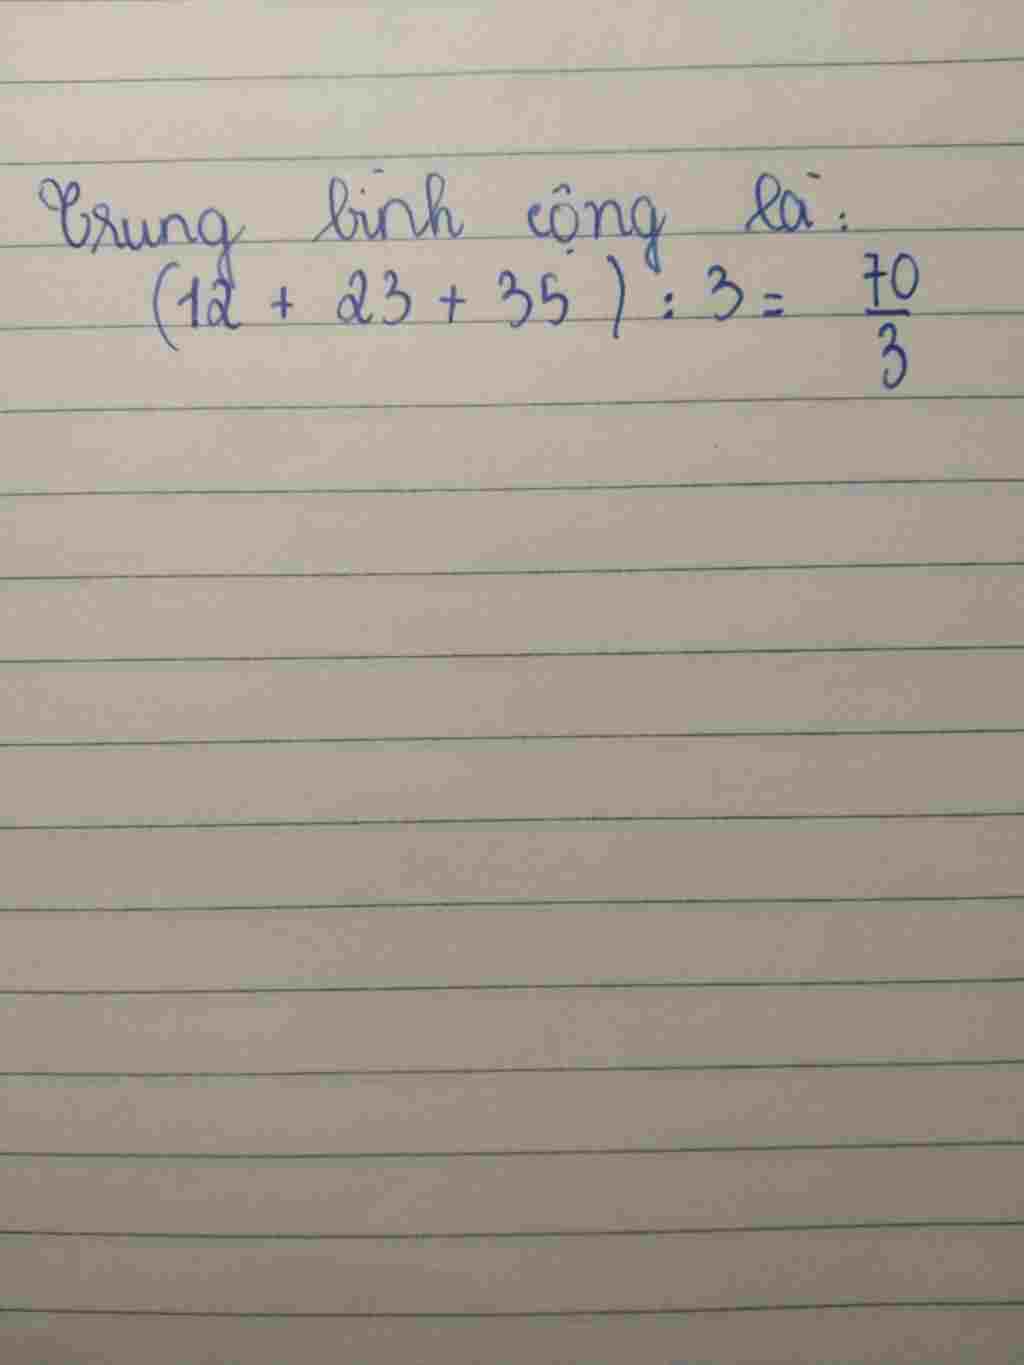 Trung bình cộng là:
(12 + 23 + 35) : 3 = 70/3